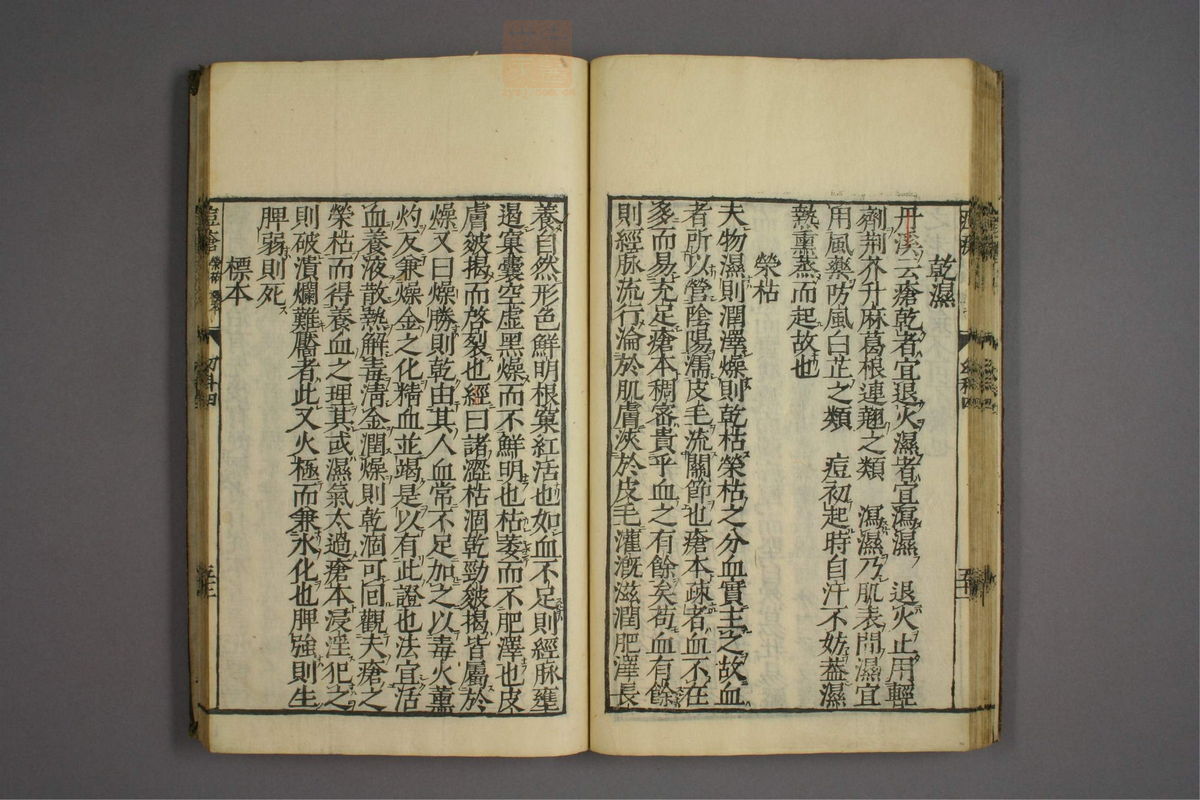 乾濕
丹溪云瘡乾者宜退火濕者宜瀉濕　退火止用輕
劑荆芥升麻葛根連翹之類　瀉濕乃肌表間濕宜
用風藥防風白芷之類　痘初起時自汗不妨葢濕
熱熏蒸而起故也
榮枯
夫物濕則潤澤燥則乾枯榮枯之分血實主之故血
者所以營陰陽濡皮毛流關節也瘡本疎者血不在
多而易充足瘡本稠密貴乎血之有餘矣苟血有餘
則經脉流行淪於肌膚浹於皮毛灌漑滋潤肥澤長
養自然形色鮮明根窠紅活也如血不足則經脉壅
遏窠囊空虚黑燥而不鮮明也枯萎而不肥澤也皮
膚皴揭而啓裂也經曰諸澀枯涸乾勁皴揭皆屬於
燥又曰燥勝則乾由其人血常不足加之以毒火薰
灼反兼燥金之化精血並竭是以有此證也法宜活
血養液散熱解毒清金潤燥則乾涸可回觀夫瘡之
榮枯而得養血之理其或濕氣太過瘡本浸淫犯之
則破潰爛難靨者此又火極而兼水化也脾強則生
脾弱則死
標本
痘瘡
榮枯
幼科四